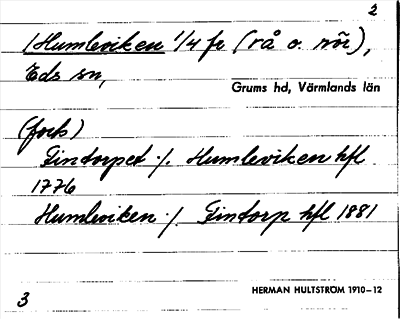 2
Humleviken 1/4 fr (rå o. rör),
Eds sn,
Grums hd, Värmlands län
(forts)
Fintorpet ./. Humleviken hfl
1776
Humleviken ./. Fintorp hfl 1881
HERMAN HULTSTRÖM 1910–12
3